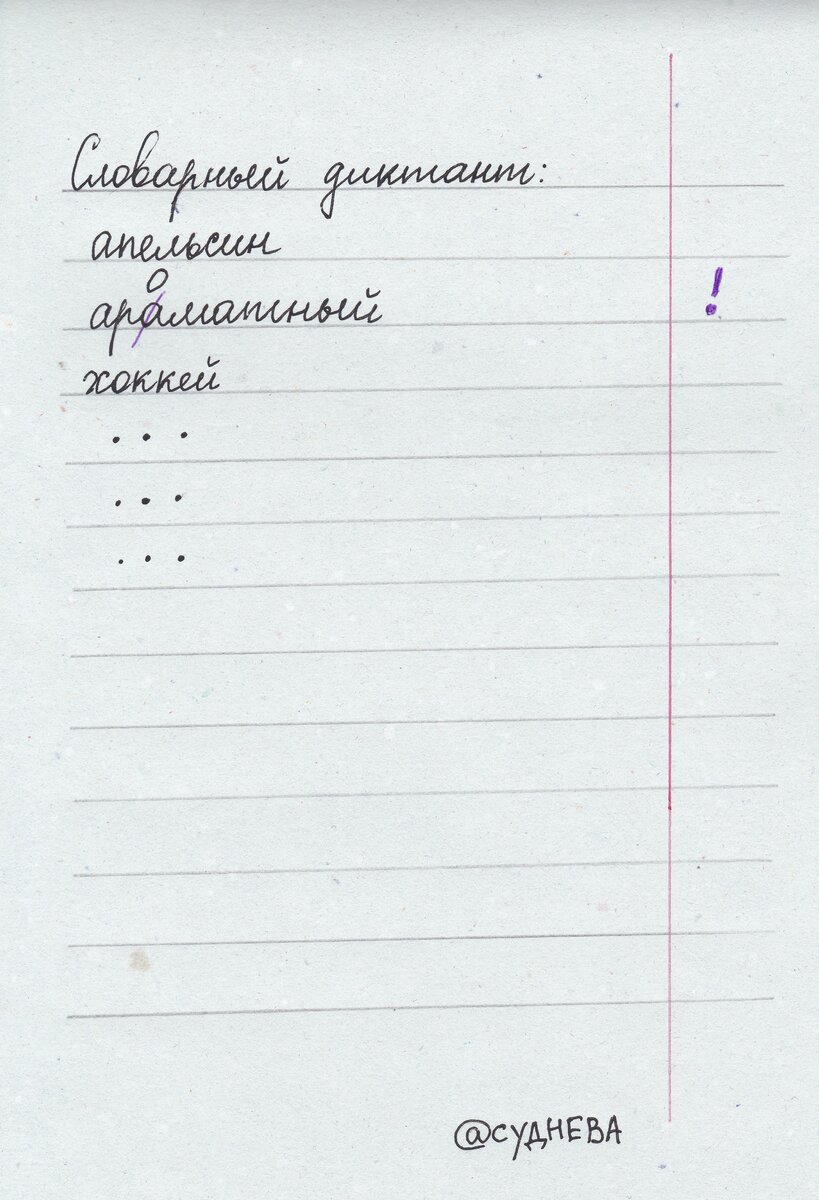 Словарный диктант:
апельсин
о
араматный !
хоккей
...
...
...
@СУДНЕВА